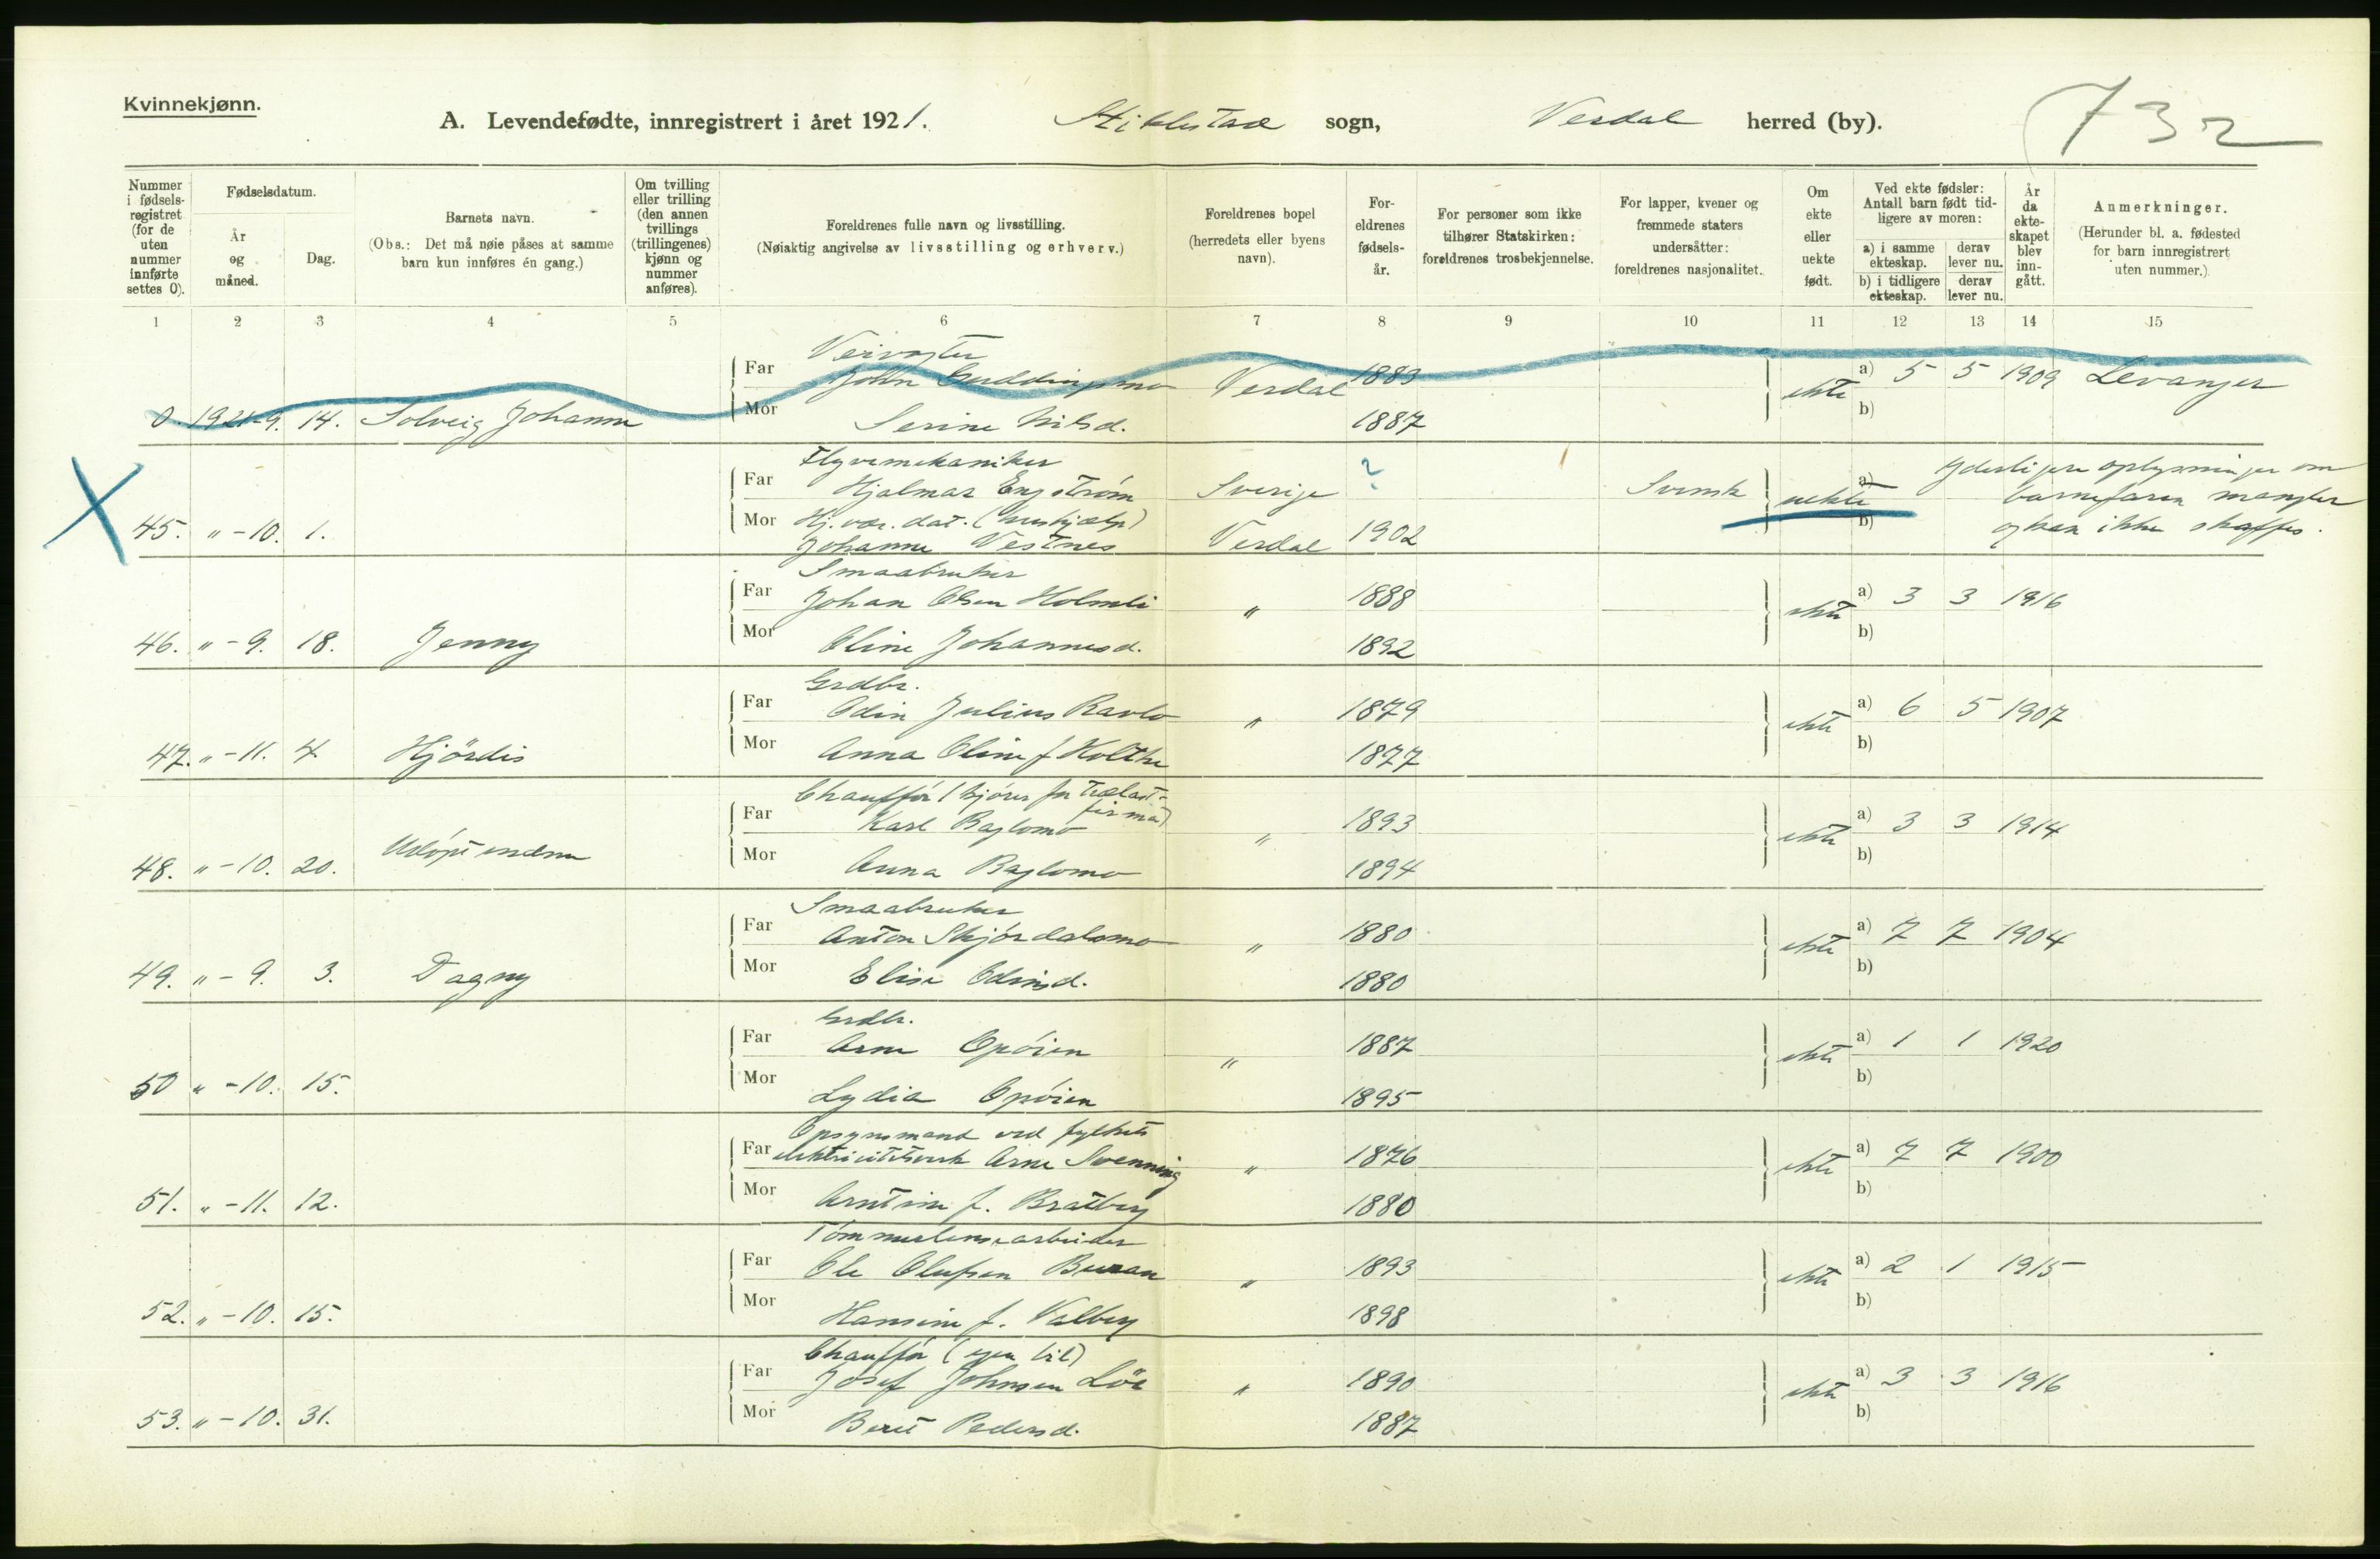 Kvinnekjønn.
A. Levendefødte, innregistrert i året 1921. Stiklestad sogn, Verdal herred (by). 732
Nummer i fødselsregistret (for de uten nummer innførte settes 0).
Fødselsdatum.
År og måned.
Dag.
Barnets navn.
(Obs.: Det må nøie påses at samme barn kun innføres én gang.)
Om tvilling eller trilling (den annen tvillings (trillingenes) kjønn og nummer anføres).
Foreldrenes fulle navn og livsstilling.
(Nøiaktig angivelse av livsstilling og erhverv.)
Foreldrenes bopel (herredets eller byens navn).
Foreldrenes fødselsår.
For personer som ikke tilhører Statskirken: foreldrenes trosbekjennelse.
For lapper, kvener og fremmede staters undersåtter: foreldrenes nasjonalitet.
Om ekte eller uekte født.
Ved ekte fødsler: Antall barn født tidligere av moren:
a) i samme ekteskap. derav lever nu.
b) i tidligere ekteskap. derav lever nu.
År da ekteskapet blev inngått.
Anmerkninger.
(Herunder bl. a. fødested for barn innregistrert uten nummer.)
1 2 3 4 5 6 7 8 9 10 11 12 13 14 15
Veivogter
Far John Verdal 1883 ekte a) 5 5 1909 Levanger
0. 1921-9. 14. Solveig Johanne Mor Serine Nilsd. 1887 b)
Flyvemekaniker
Far Hjalmar Engström Sverige ? Svensk uekte a) Yderligere oplysninger om
Mor Hj. vær. dat. (hushjælp) barnefaren mangler
45. " -10. 1. Johanna Vestnes Verdal 1902 b) og kan ikke skaffes.
Smaabruker
Far Johan Olsen Holmli " 1888 ekte a) 3 3 1916
46. " -9. 18. Jenny Mor Oline Johannesd. 1892 b)
Grdbr.
Far Odin Julius Ravlo " 1879 ekte a) 6 5 1907
47. " -11. 4. Hjördis Mor Anna Oline f Holthe 1877 b)
Chauffør (kjører for trælastfirma)
Far Karl Baglomo " 1893 ekte a) 3 3 1914
48. " -10. 20. Udøpt endnu Mor Anna Baglomo 1894 b)
Smaabruker
Far Anton Skjørdalsmo " 1880 ekte a) 7 7 1904
49. " -9. 3. Dagny Mor Elise Odinsd. 1880 b)
Grdbr.
Far Arne Opøien " 1887 ekte a) 1 1 1920
50 " -10. 15. Mor Lydia Opøien 1895 b)
Opsynsmand ved fylkets
Far elektricitetsverk Arne Svenning " 1876 ekte a) 7 7 1900
51. " -11. 12. Mor Arntine f. Bratberg 1880 b)
Tømmerlensearbeider
Far Ole Olufsen Buran " 1893 ekte a) 2 1 1915
52. " -10. 15. Mor Hansine f. Valberg 1898 b)
Chauffør (egen bil)
Far Josef Johnsen Löe " 1890 ekte a) 3 3 1916
53. " -10. 31. Mor Berit Pedersd. 1887 b)